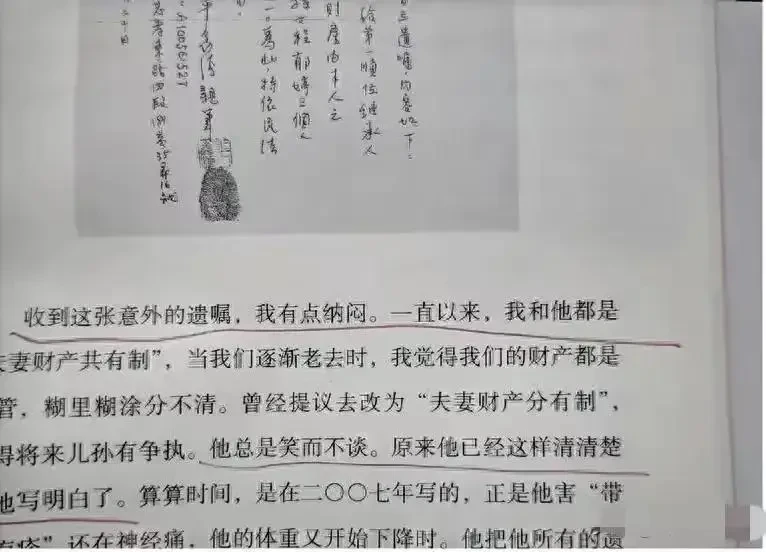 自立遺囑，內容如下：
給第一順位繼承人
則應由本人之
一〇
特依民法
A100564527
收到这张意外的遗嘱，我有点纳闷。一直以来，我和他都是
夫妻财产共有制”，当我们逐渐老去时，我觉得我们的财产都是
管，糊里糊涂分不清。曾经提议去改为“夫妻财产分有制”，
得将来儿孙有争执。他总是笑而不谈。原来他已经这样清清楚
地写明白了。算算时间，是在二〇〇七年写的，正是他害“带
还在神经痛，他的体重又开始下降时。他把他所有的遗